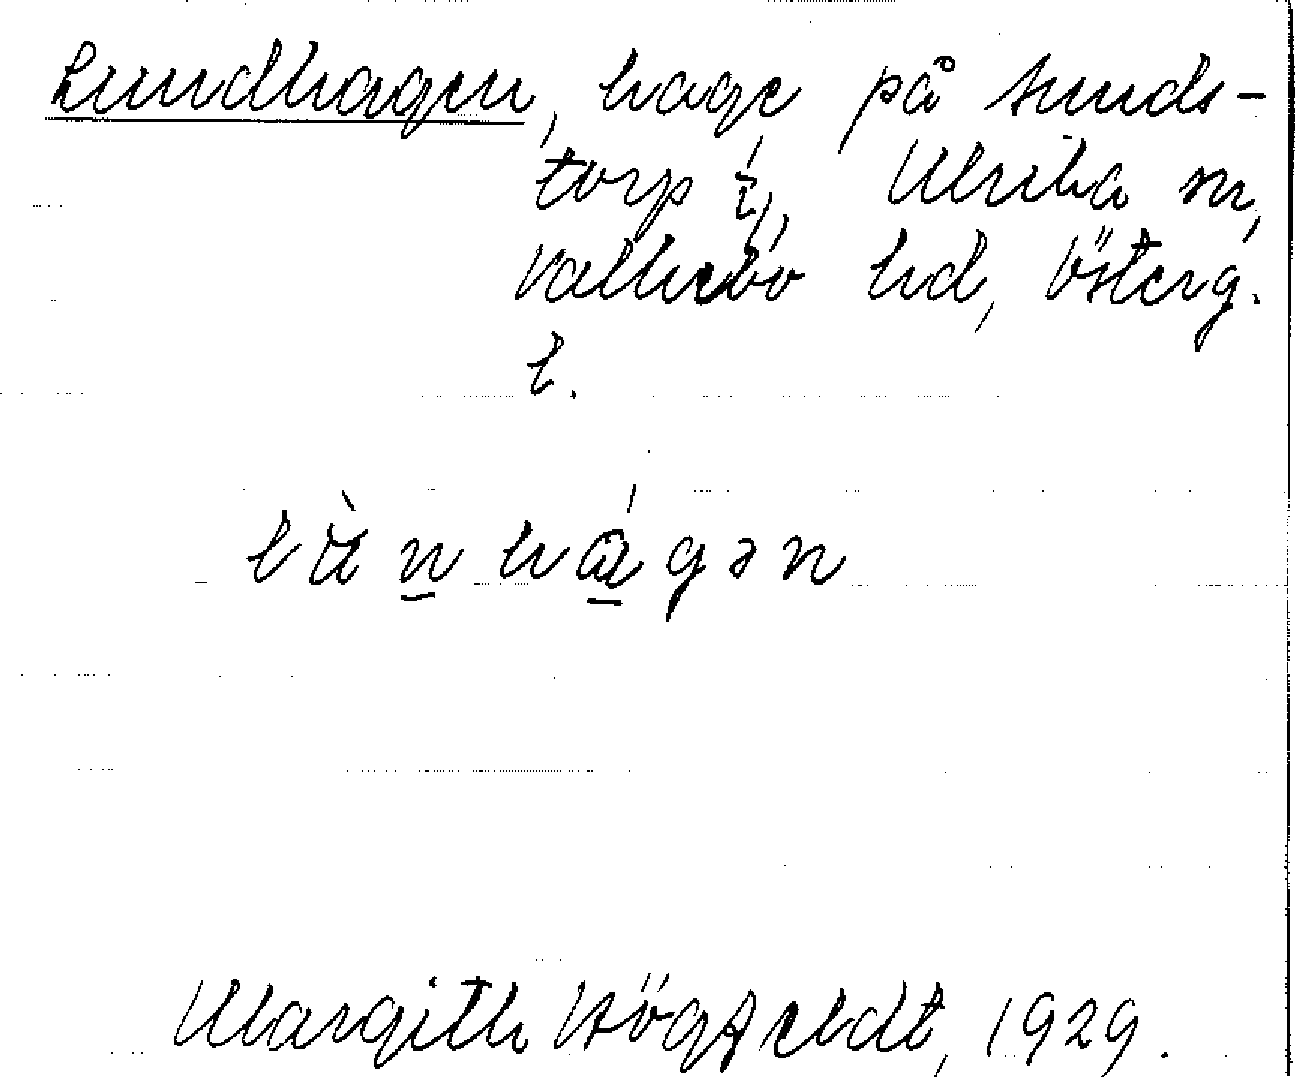 Lundhagen, hage på Sunds-
torp 1/2, Ulrika sn,
Valkebo hd, Österg.
l.
lùnhágən
Margith Högfeldt, 1929.